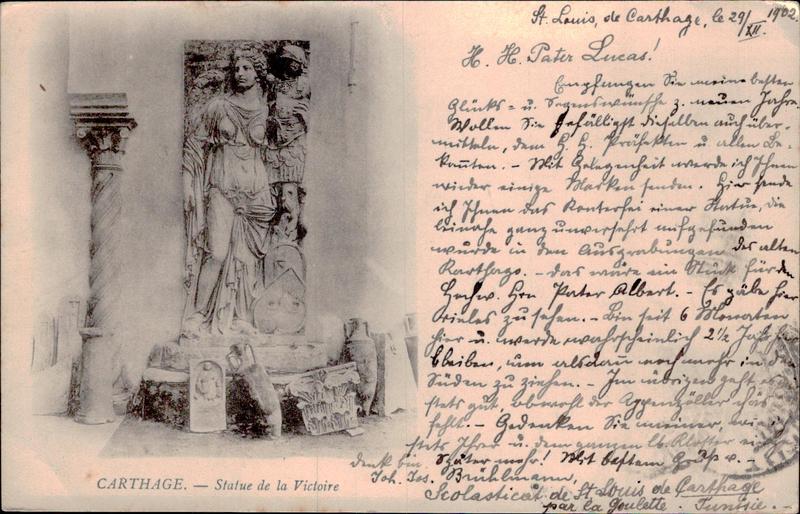 CARTHAGE. — Statue de la Victoire
St. Louis, de Carthage, le 29/XII. 1902.
H. H. Pater Lucas!
Empfangen Sie meine besten
Glücks- u. Segenswünsche z. neuen Jahre
Wollen Sie gefälligst dieselben auch über-
mitteln, dem H. H. Präfekten u. allen Be-
kannten. - Mit Gelegenheit werde ich Ihnen
wieder einige Marken senden. Hier sende
ich Ihnen das Konterfei einer Statue, die
beinahe ganz unversehrt aufgefunden
wurde in den Ausgrabungen des alten
Karthago. - Das wäre ein Stück für den
Hochw. Hrn. Pater Albert. - Es gäbe hier
vieles zu sehen. - Bin seit 6 Monaten
hier u. werde wahrscheinlich 2½ Jahre
bleiben, um alsdann noch mehr in den
Süden zu ziehen. - Im übrigen geht es
stets gut, obwohl der Appenzeller
fehlt. - Gedenken Sie meiner, wie
stets Ihrer u. dem ganzen lb. Kloster
denk bin. Später mehr! Mit bestem Gruß v. -
Joh. Jos. Brühlmann,
Scolasticat de St Louis de Carthage
par la Goulette. Tunisie. -